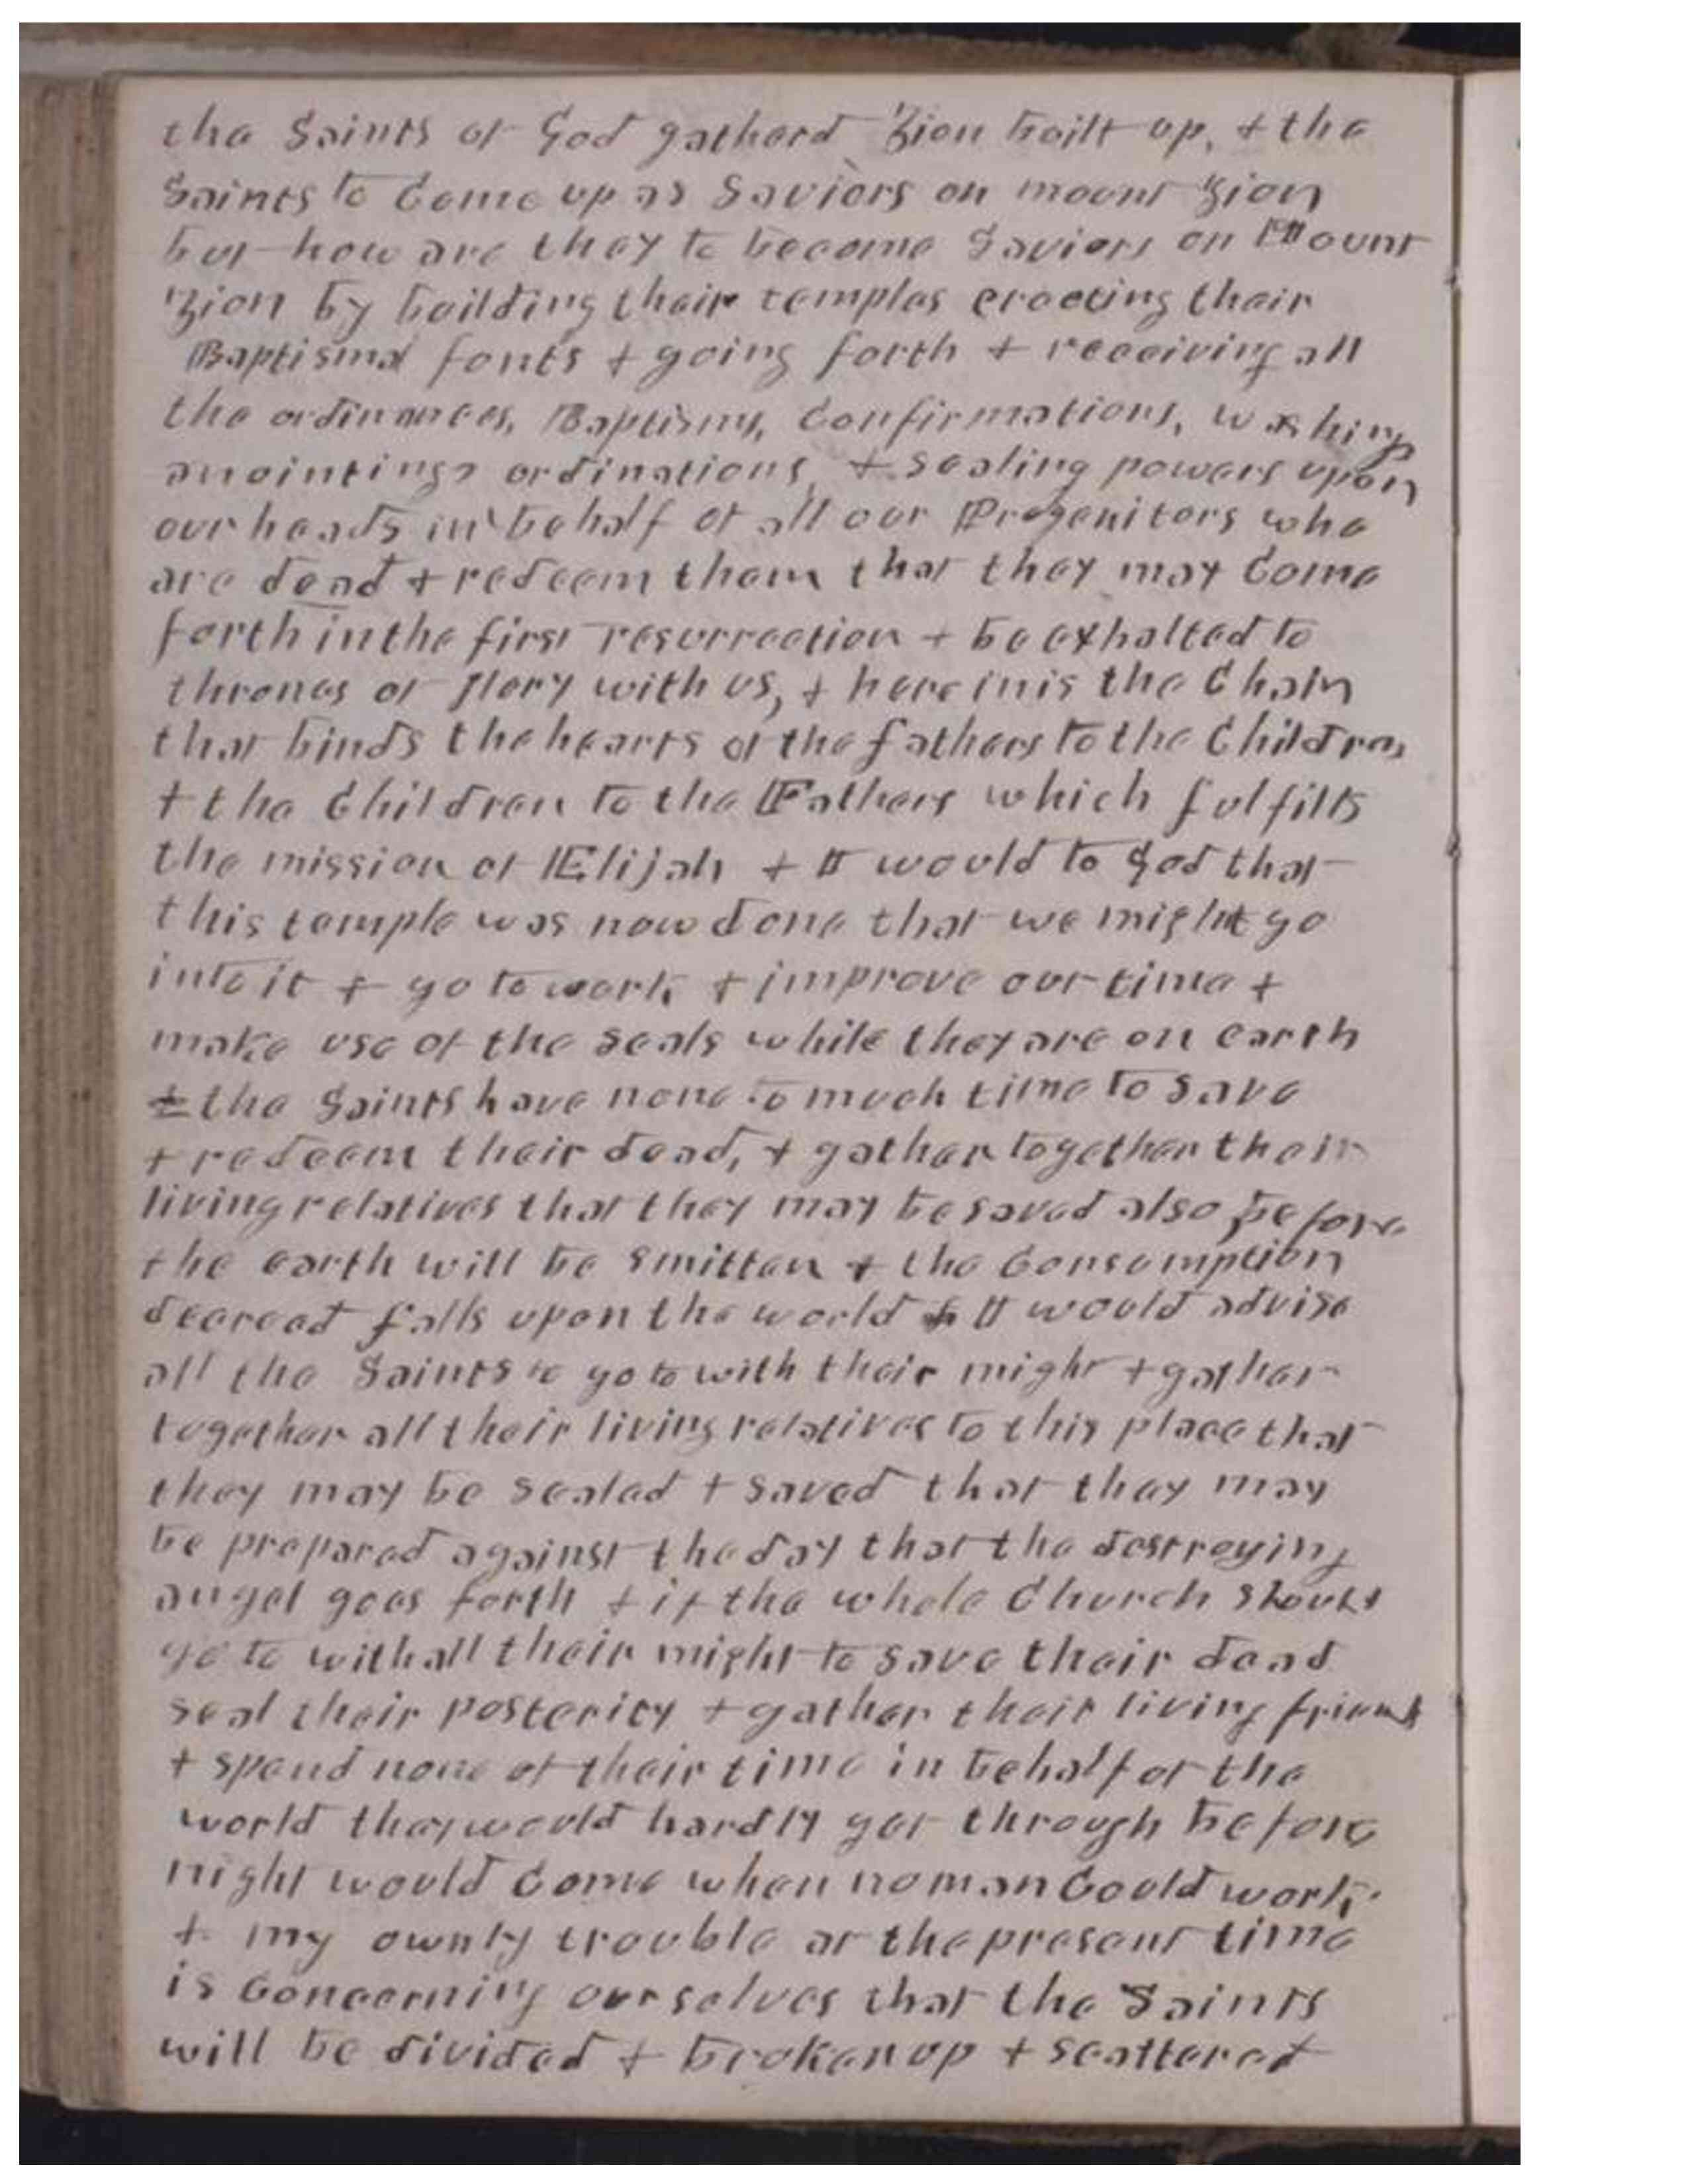 the Saints of God gatherd Zion built up, & the
Saints to Come up as Saviors on mount Zion
but how are they to become Saviors on Mount
Zion by building thair temples erecting thair
Baptismal fonts & going forth & receiving all
the ordinances, Baptisms, Confirmations, washings
anointings ordinations & sealing powers upon
our heads in behalf of all our Progenitors who
are dead & redeem them that they may Come
forth in the first resurrection & be exhalted to
thrones of glory with us, & here in is the Chain
that binds the hearts of the fathers to the Children
& the Children to the Fathers which fulfills
the mission of Elijah & I would to God that
this temple was now done that we might go
into it & go to work & improve our time &
make use of the seals while they are on earth
& the Saints have none to much time to save
& redeem their dead, & gather together their
living relatives that they may be saved also before
the earth will be smitten & the Consumption
decreed falls upon the world & I would advise
all the Saints to go to with their might & gather
together all their living relatives to this place that
they may be sealed & saved that they may
be prepared against the day that the destroying
angel goes forth & if the whole Church should
go to with all their might to save their dead
seal their posterity & gather their living friends
& spend none of their time in behalf of the
world they would hardly get through before
night would Come when no man Could work
& my ownly trouble at the present time
is concerning ourselves that the Saints
will be divided & broken up & scattered